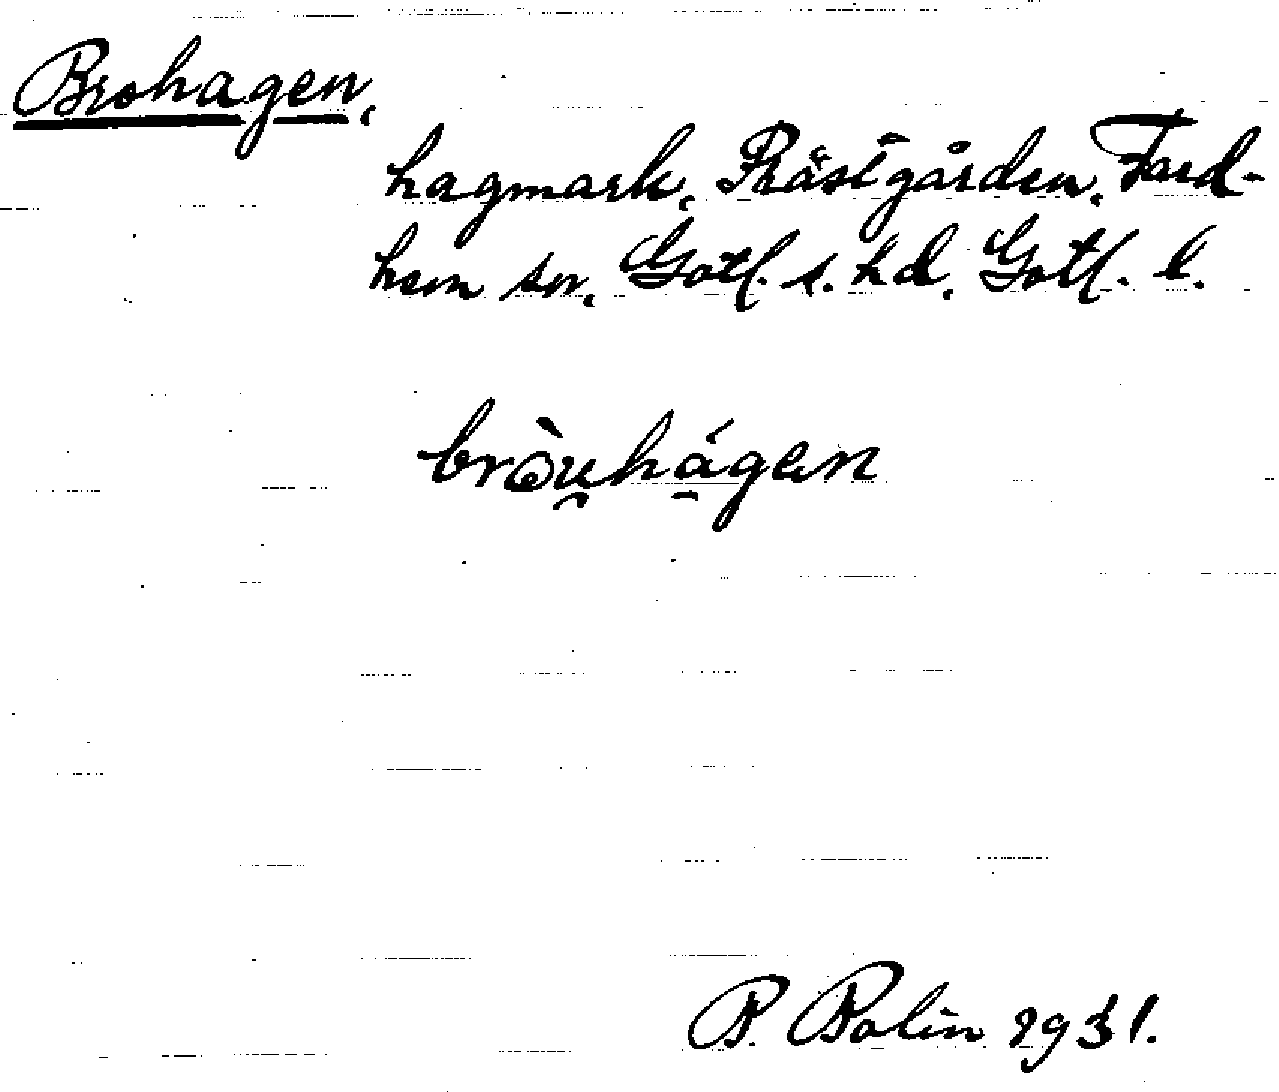 Brohagen,
hagmark, Prästgården, Fard-
hem sn, Gotl. s. hd, Gotl. l.
bròu̯há̱gan
P. Bolin 1931.